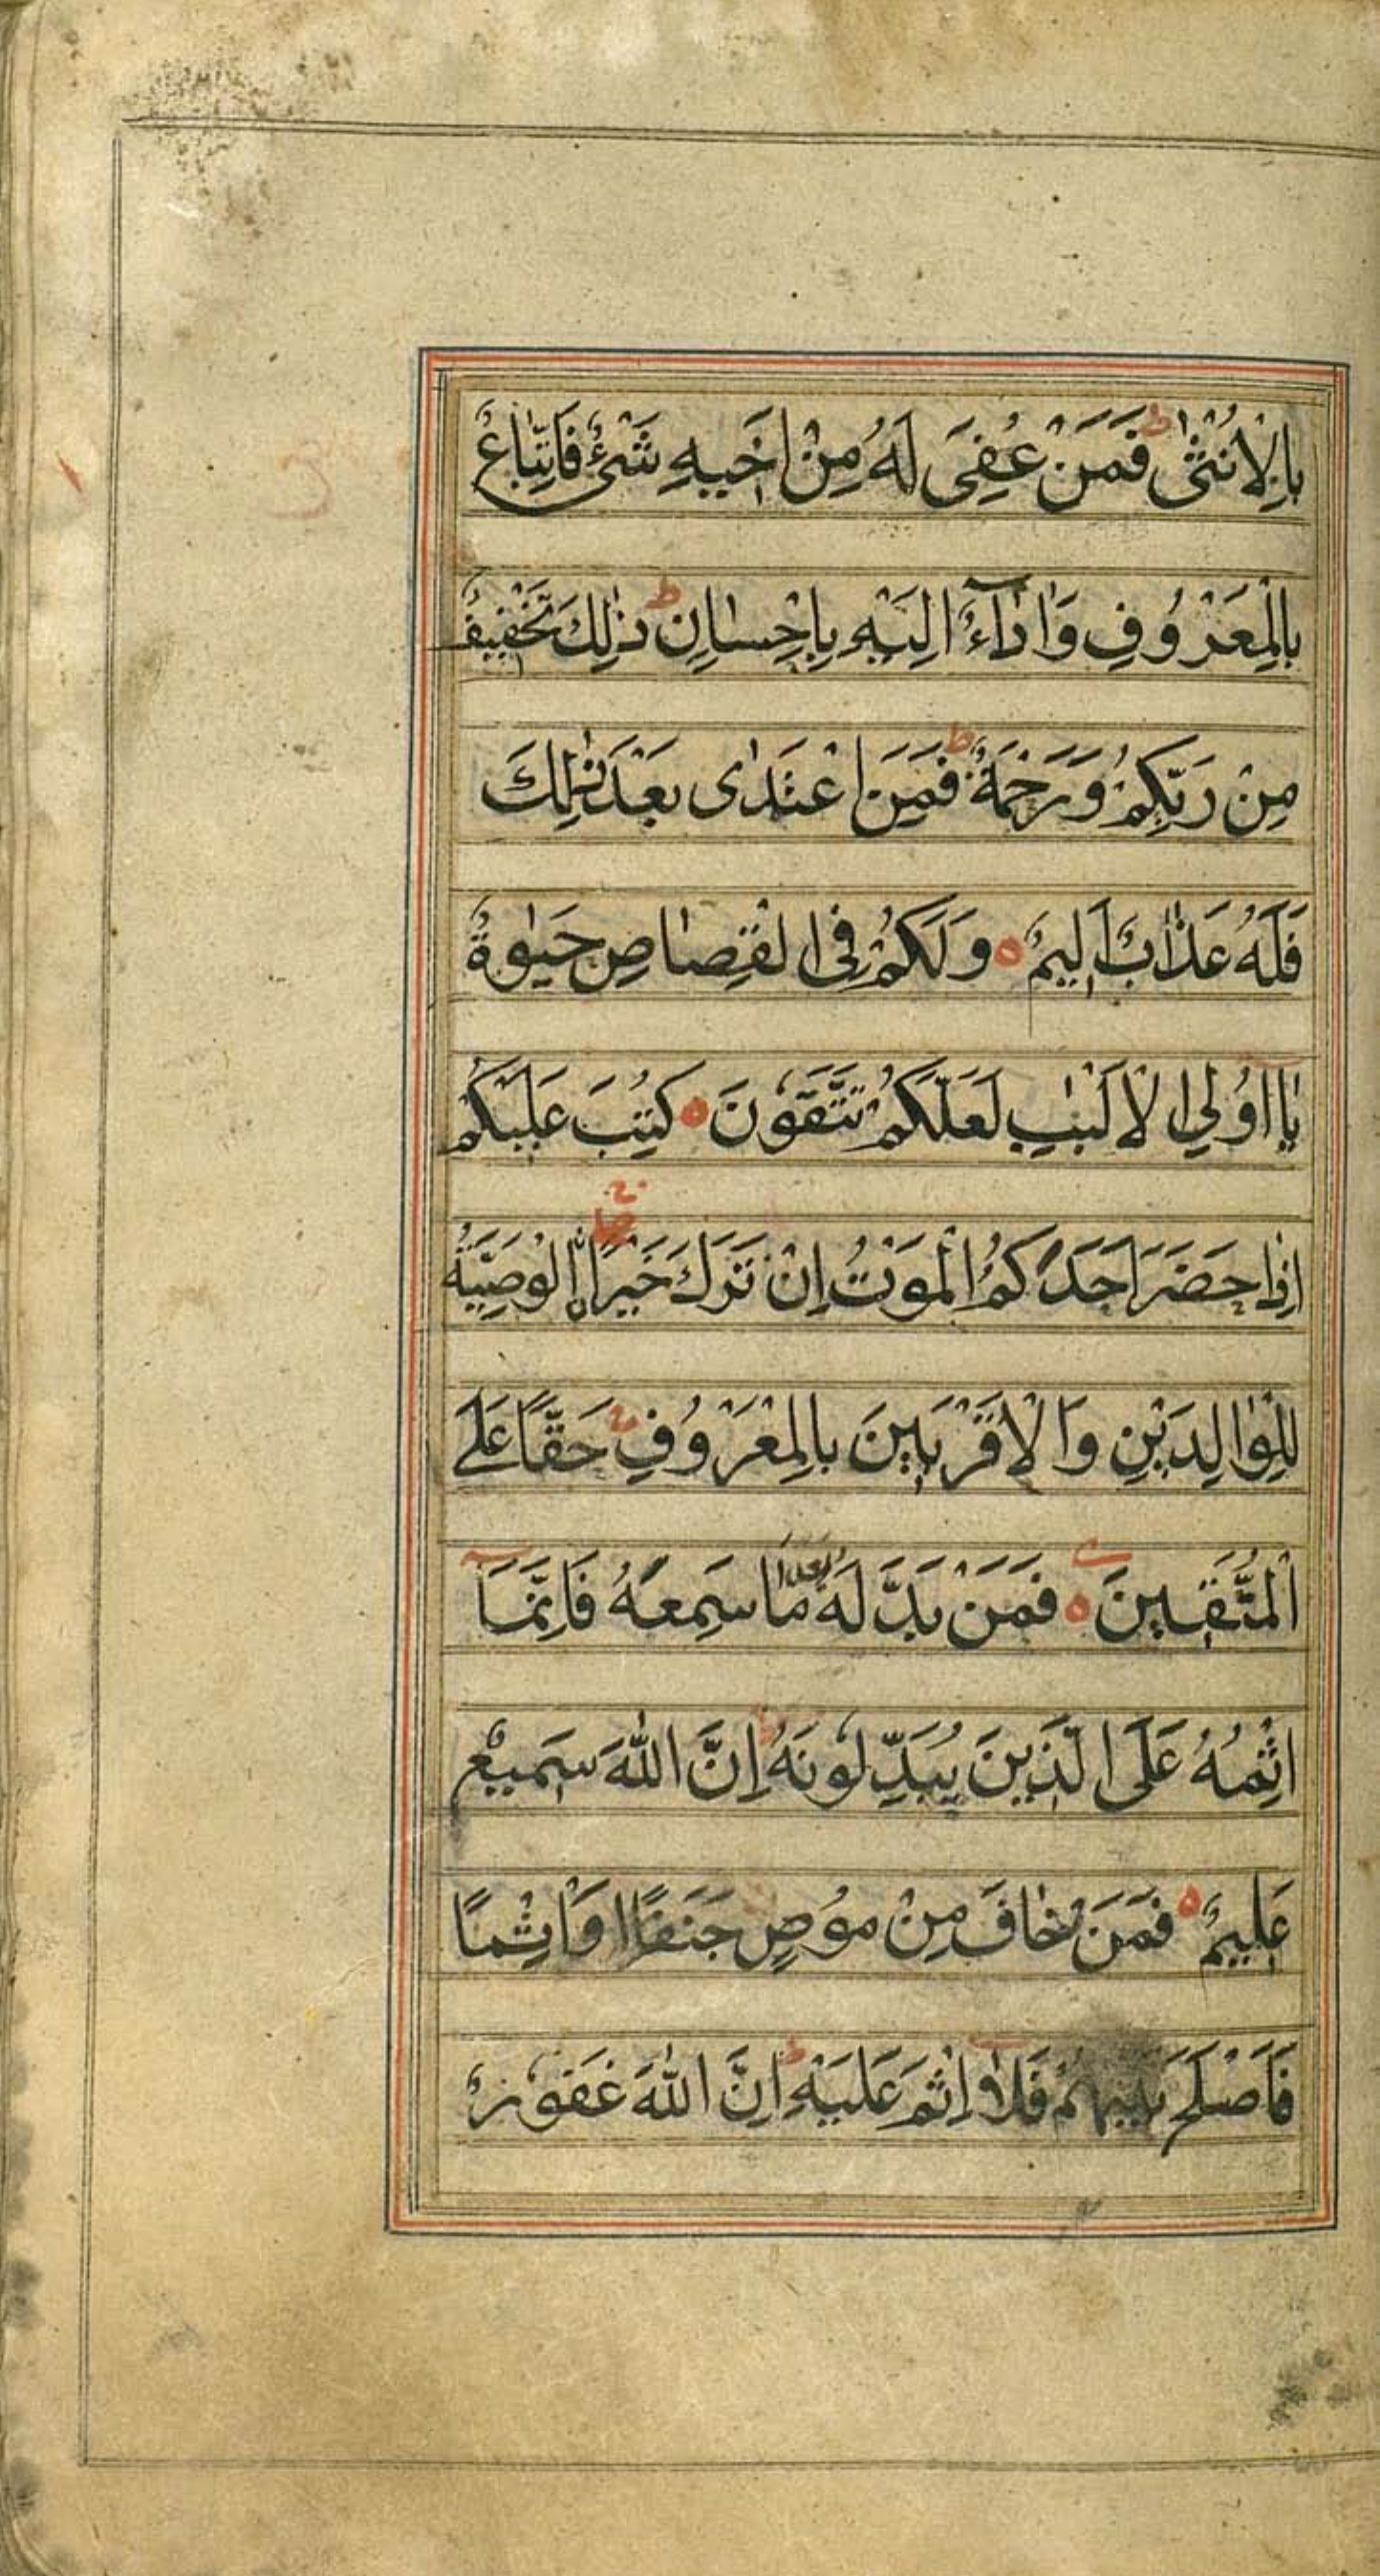 بِالْاُنْثٰى ط فَمَنْ عُفِيَ لَهُ مِنْ اَخِيهِ شَيْءٌ فَاتِّبَاعٌ
بِالْمَعْرُوفِ وَاَدَآءٌ اِلَيْهِ بِاِحْسَانٍ ط ذٰلِكَ تَخْفِيفٌ
مِنْ رَبِّكُمْ وَرَحْمَةٌ ط فَمَنِ اعْتَدٰى بَعْدَ ذٰلِكَ
فَلَهُ عَذَابٌ اَلِيمٌ ه وَلَكُمْ فِي الْقِصَاصِ حَيٰوةٌ
يَا اُولِي الْاَلْبٰبِ لَعَلَّكُمْ تَتَّقُونَ ه كُتِبَ عَلَيْكُمْ
اِذَا حَضَرَ اَحَدَكُمُ الْمَوْتُ اِنْ تَرَكَ خَيْرًا الْوَصِيَّةُ
لِلْوَالِدَيْنِ وَالْاَقْرَبِينَ بِالْمَعْرُوفِ حَقًّا عَلَى
الْمُتَّقِينَ ه فَمَنْ بَدَّلَهُ بَعْدَ مَا سَمِعَهُ فَاِنَّمَا
اِثْمُهُ عَلَى الَّذِينَ يُبَدِّلُونَهُ اِنَّ اللّٰهَ سَمِيعٌ
عَلِيمٌ ه فَمَنْ خَافَ مِنْ مُوصٍ جَنَفًا اَوْ اِثْمًا
فَاَصْلَحَ بَيْنَهُمْ فَلَا اِثْمَ عَلَيْهِ ط اِنَّ اللّٰهَ غَفُورٌ